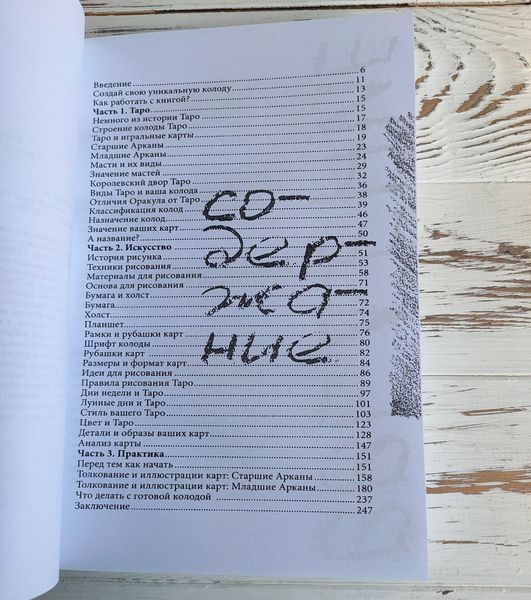 Введение 6
Создай свою уникальную колоду 11
Как работать с книгой? 13
Часть 1. Таро 15
Немного из истории Таро 15
Строение колоды Таро 17
Таро и игральные карты 18
Старшие Арканы 19
Младшие Арканы 23
Масти и их виды 24
Значение мастей 29
Королевский двор Таро 32
Виды Таро и ваша колода 36
Отличия Оракула от Таро 38
Классификация колод 39
Назначение колод 46
Значение ваших карт 47
А название? 50
Часть 2. Искусство 51
История рисунка 51
Техники рисования 53
Материалы для рисования 58
Основа для рисования 71
Бумага и холст 72
Бумага 72
Холст 74
Планшет 75
Рамки и рубашки карт 76
Шрифт колоды 80
Рубашки карт 82
Размеры и формат карт 84
Идеи для рисования 86
Правила рисования Таро 89
Дни недели и Таро 97
Лунные дни и Таро 101
Стиль вашего Таро 103
Цвет и Таро 123
Детали и образы ваших карт 128
Анализ карты 147
Часть 3. Практика 151
Перед тем как начать 151
Толкование и иллюстрации карт: Старшие Арканы 158
Толкование и иллюстрации карт: Младшие Арканы 180
Что делать с готовой колодой 237
Заключение 247
со-
дер-
жа-
ние